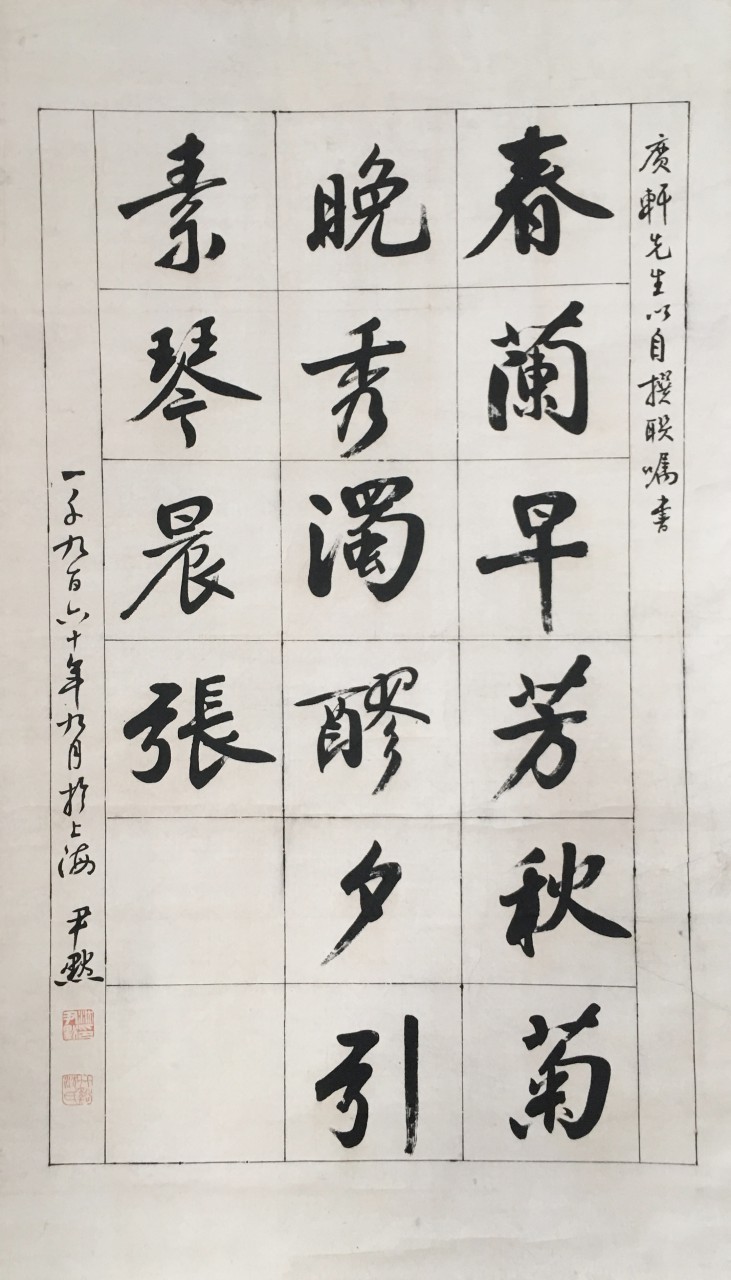 广軒先生以自撰联嘱書
春蘭早芳秋菊
晚秀濁醪夕引
素琴晨張
一千九百六十年九月於上海 尹默